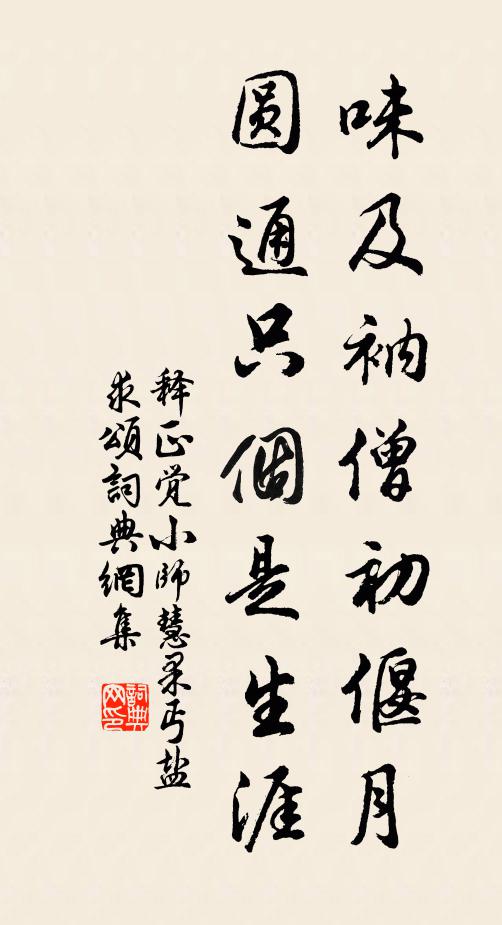 味及衲僧初偃月
圆通只個是生涯
释正觉小師慧杲丐盐
求頌詞典網集
詞典网印